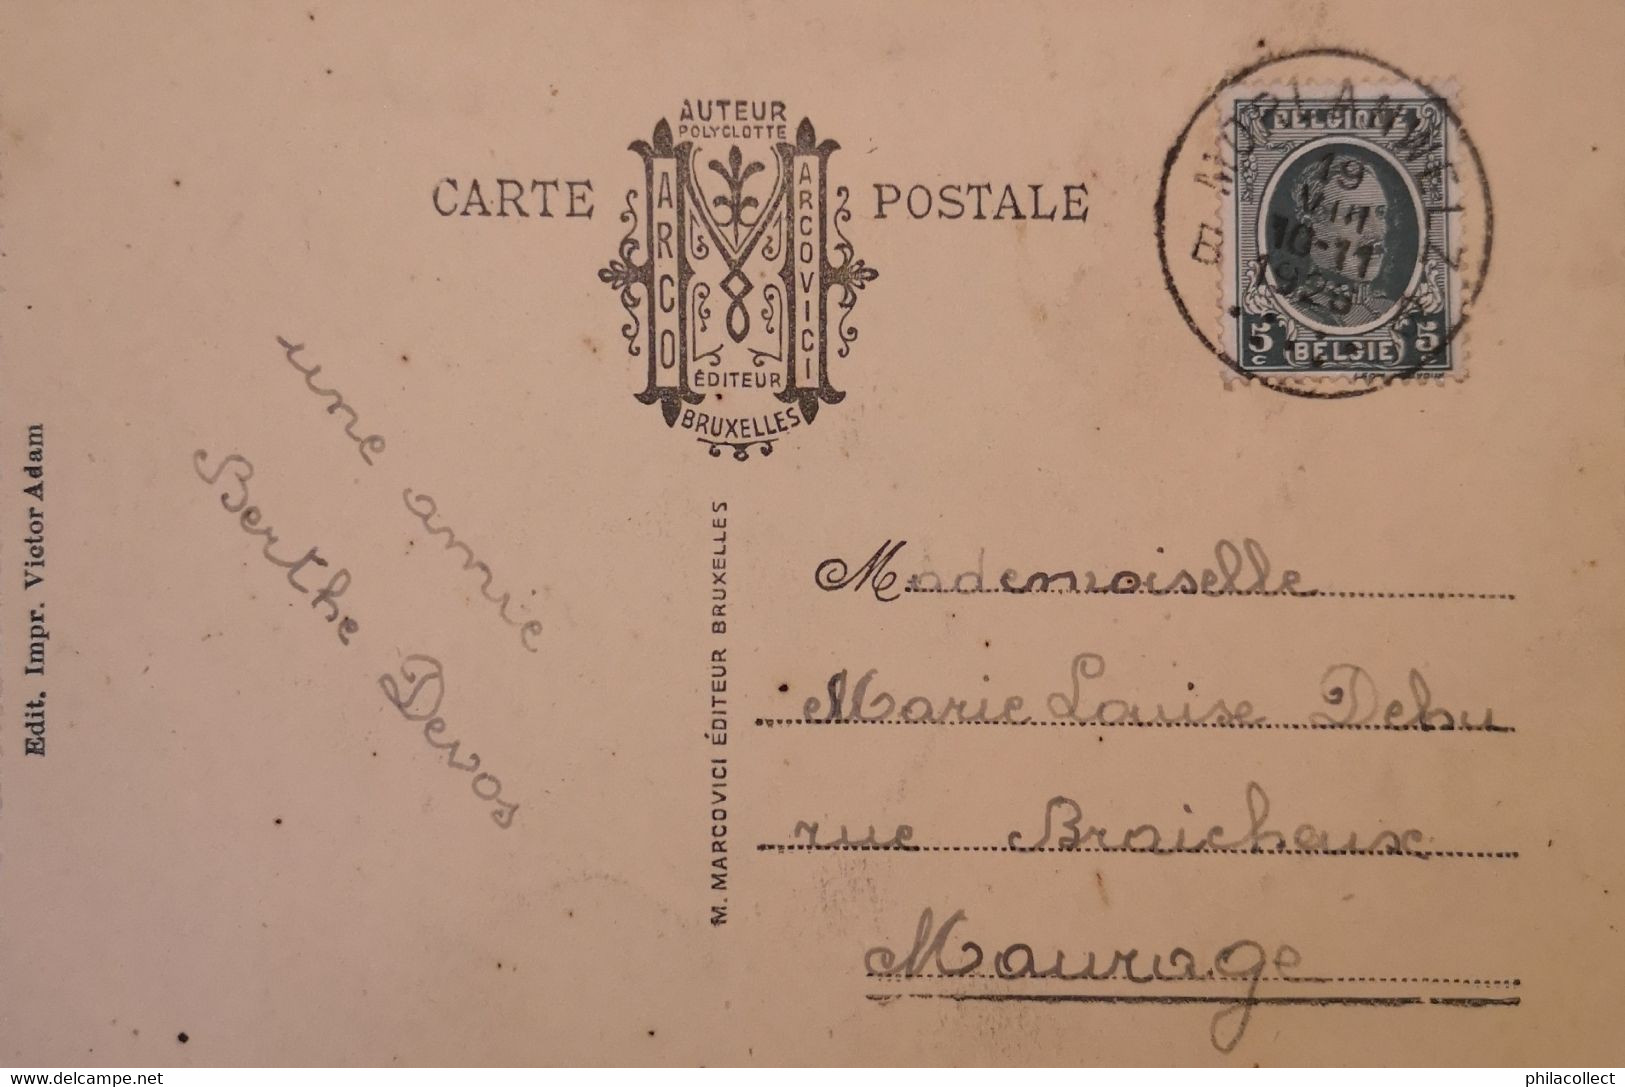 AUTEUR
POLYGLOTTE
CARTE POSTALE
ARCO
ARCOVICI
ÉDITEUR
BRUXELLES
MORLANWELZ
19
VIII
10-11
1926
BELGIQUE
5 c BELGIE 5 c
une amie
Berthe Devos
Edit. Impr. Victor Adam
M. MARCOVICI ÉDITEUR BRUXELLES
Mademoiselle
Marie Louise Dehu
rue Braicheux
Maurage
www.delcampe.net
philacollect